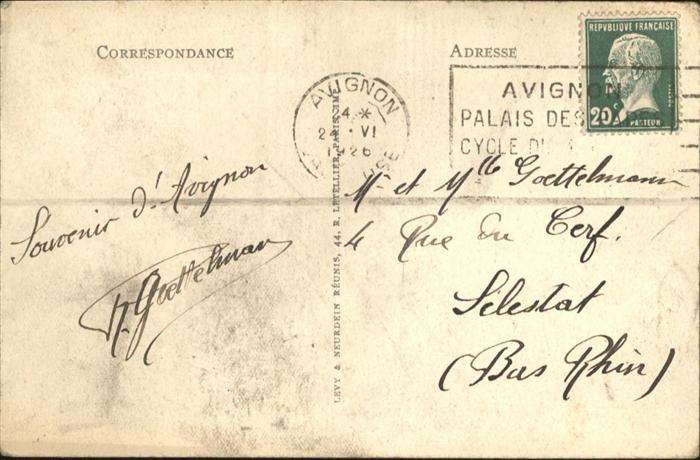 CORRESPONDANCE
ADRESSE
RÉPUBLIQUE FRANÇAISE
20c
PASTEUR
AVIGNON
4 *
VI
26
AVIGNON
PALAIS DES
CYCLE
Souvenir d'Avignon
Goettelman
LEVY & NEURDEIN RÉUNIS, 44, R. LETELLIER, PARIS
M et Mlle Goettelmann
4 Rue du Cerf.
Sélestat
(Bas Rhin)